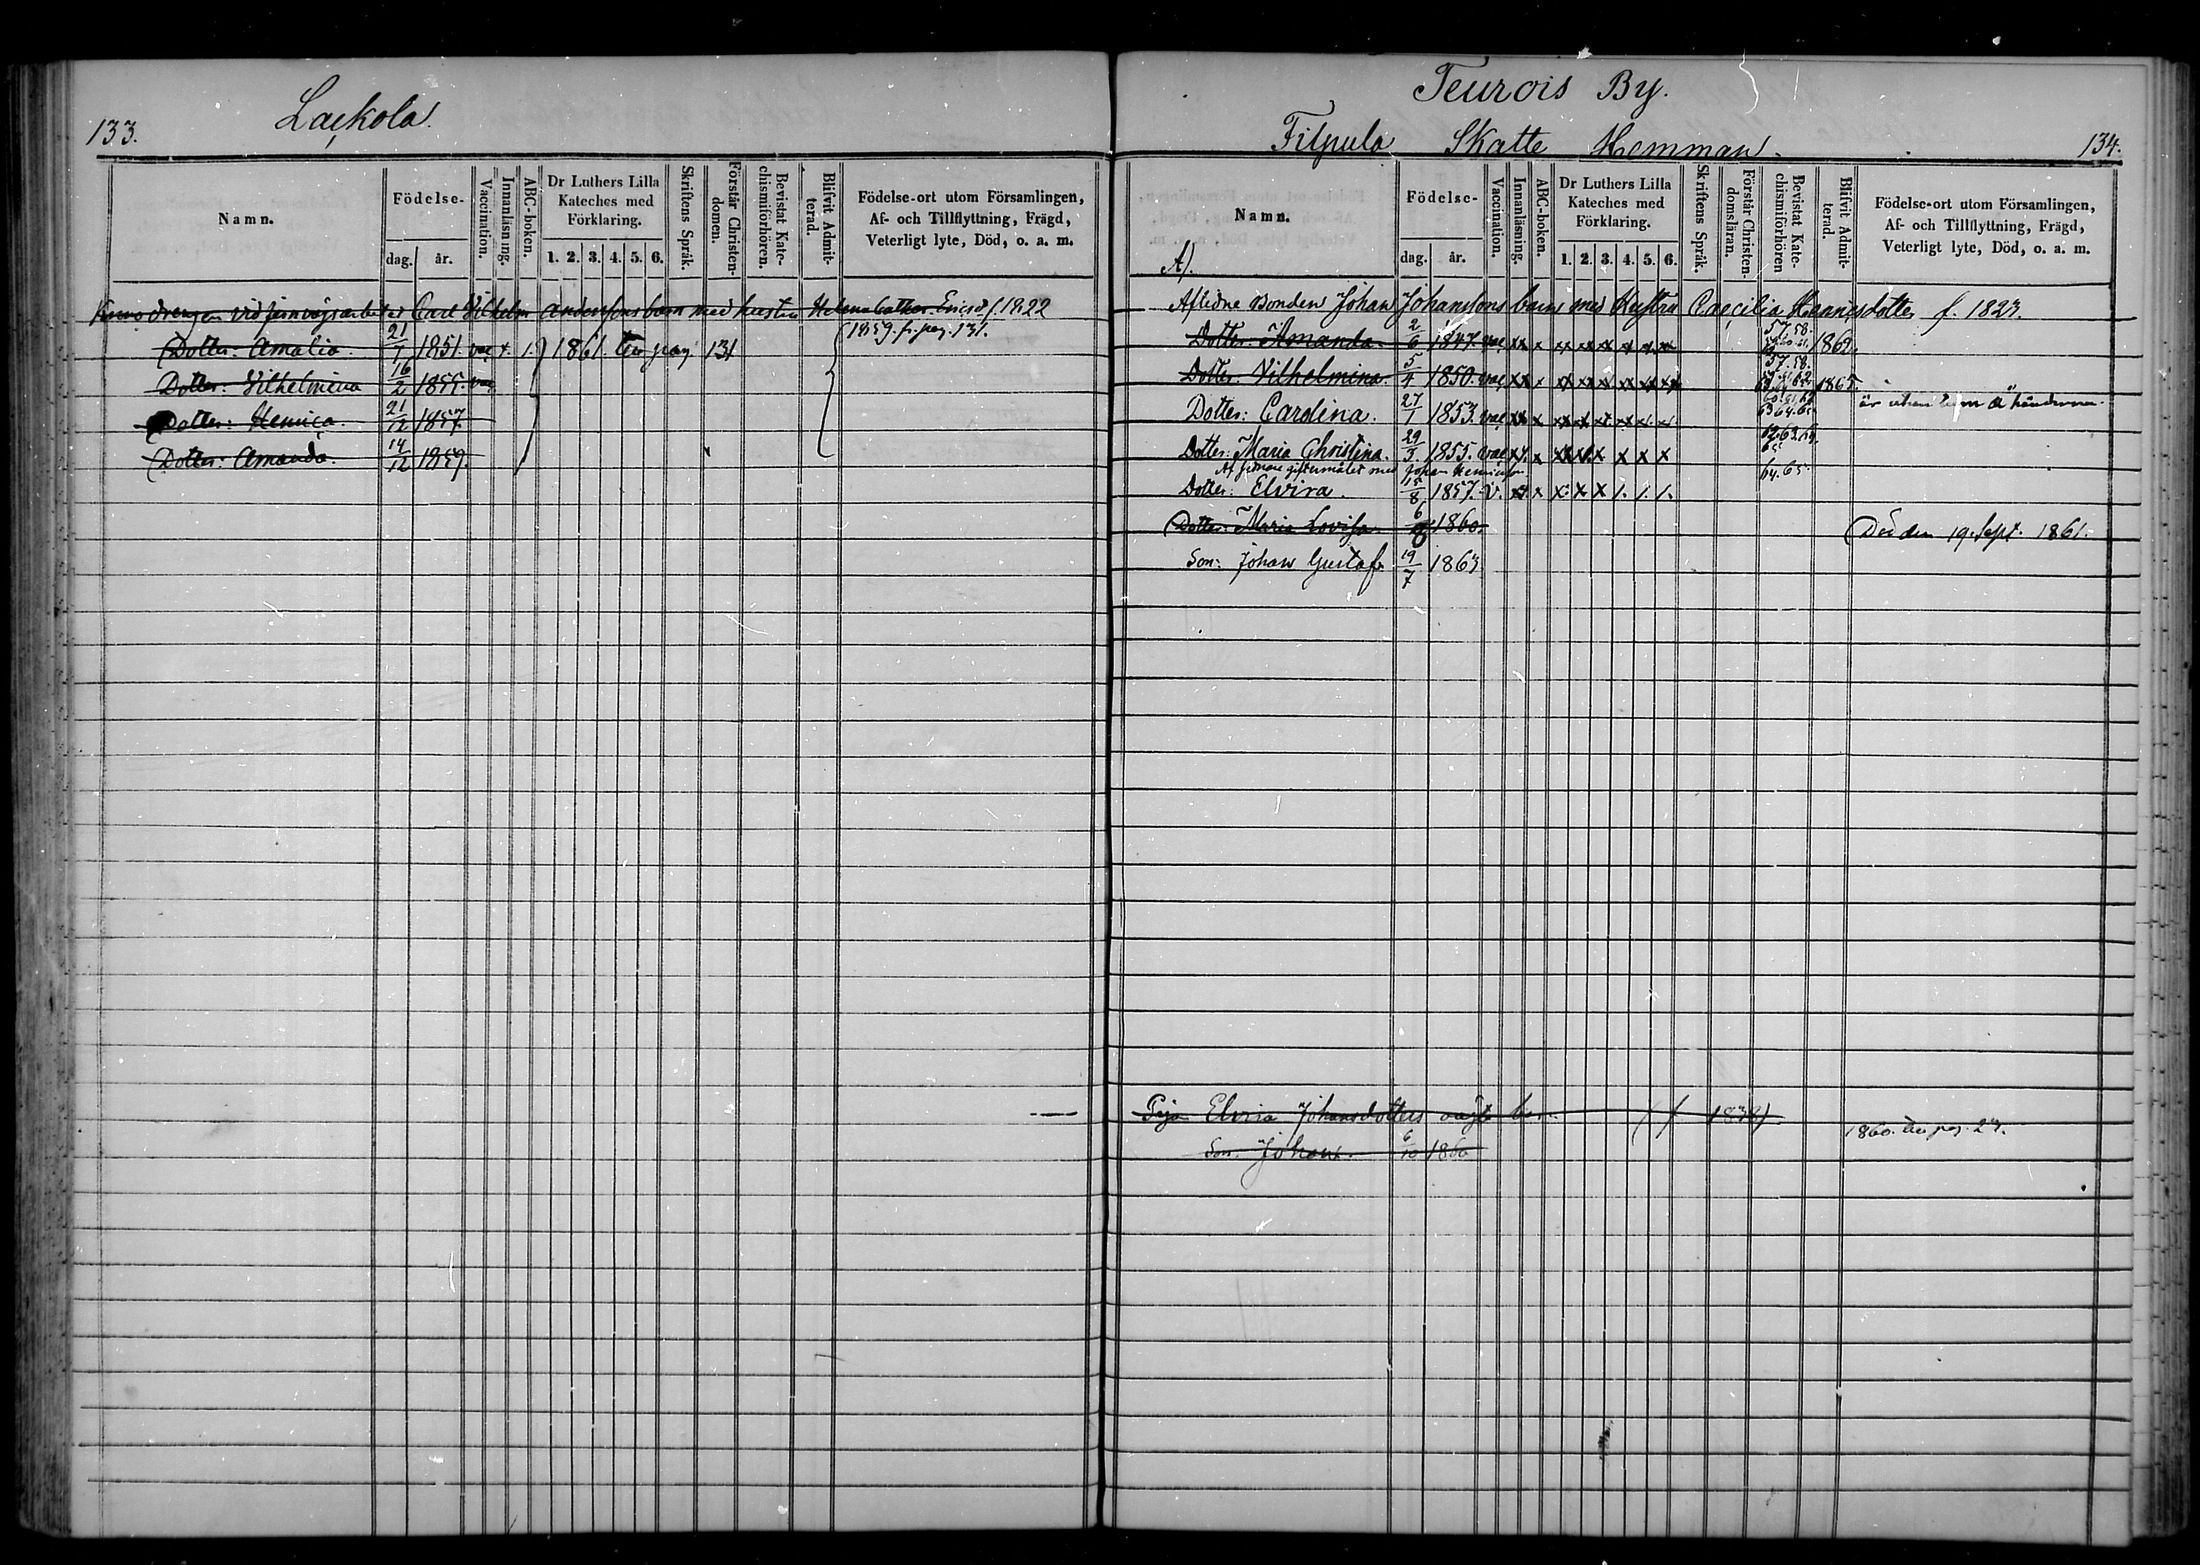 133.
Lackola.
Namn.
Födelse-
dag.
år.
Vaccination.
Innanläsning.
ABC-boken.
Dr Luthers Lilla Kateches med Förklaring.
1. 2. 3. 4. 5. 6.
Skriftens Språk.
Förstår Christen-domen.
Bevistat Kate-chismiförhören.
Blifvit Admit-terad.
Födelse-ort utom Församlingen,
Af- och Tillflyttning, Frägd,
Veterligt lyte, Död, o. a. m.
drengen vid jernvägsarbetet Carl Vilhelm Anderssons barn med hustru Helena Cathar. Ericsd. f. 1822
Dotter: Amalia. 21/7 1851. vac x. 1. 1861. till pag 131 1859 fr. pag. 131.
Dotter: Vilhelmina 16/2 1855. vac
Dotter: Henrica. 21/12 1857.
Dotter: Amanda. 14/12 1859.
Teurois By.
Filpula Skatte Hemman.
134.
Namn.
A).
Födelse-
dag.
år.
Vaccination.
Innanläsning.
ABC-boken.
Dr Luthers Lilla Kateches med Förklaring.
1. 2. 3. 4. 5. 6.
Skriftens Språk.
Förstår Christen-domsläran.
Bevistat Kate-chismiförhören
Blifvit Admit-terad.
Födelse-ort utom Församlingen,
Af- och Tillflyttning, Frägd,
Veterligt lyte, Död, o. a. m.
Aflidne Bonden Johan Johanssons barn med Hustru Caecilia Henricsdotter f. 1823.
Dotter: Amanda. 2/6 1847. vac xx x xx x x x x x 57. 58.
Dotter: Vilhelmina. 5/4 1850. vac xx x xx xx xx xx xx xx 57. 58. 1865.
Dotter: Carolina. 27/1 1853. vac xx x xx x x x x x 63. 64. 65. är utan lem å händerna
Dotter: Maria Christina. 29/3 1855. vac xx x xx xx x x x x 62. 63. 64. 65.
Af förra giftermålet med Johan Henricsson
Dotter: Elvira. 15/8 1857. v. x x x x x 1. 1. 1. 64. 65.
Dotter: Maria Lovisa. 1860. Död den 19. Sept. 1861.
Son: Johan Gustaf. 19/7 1863
Piga Elvira Johansdotters oägta barn
Son: Johan. 6/10 1860 1860. till pag. 27.